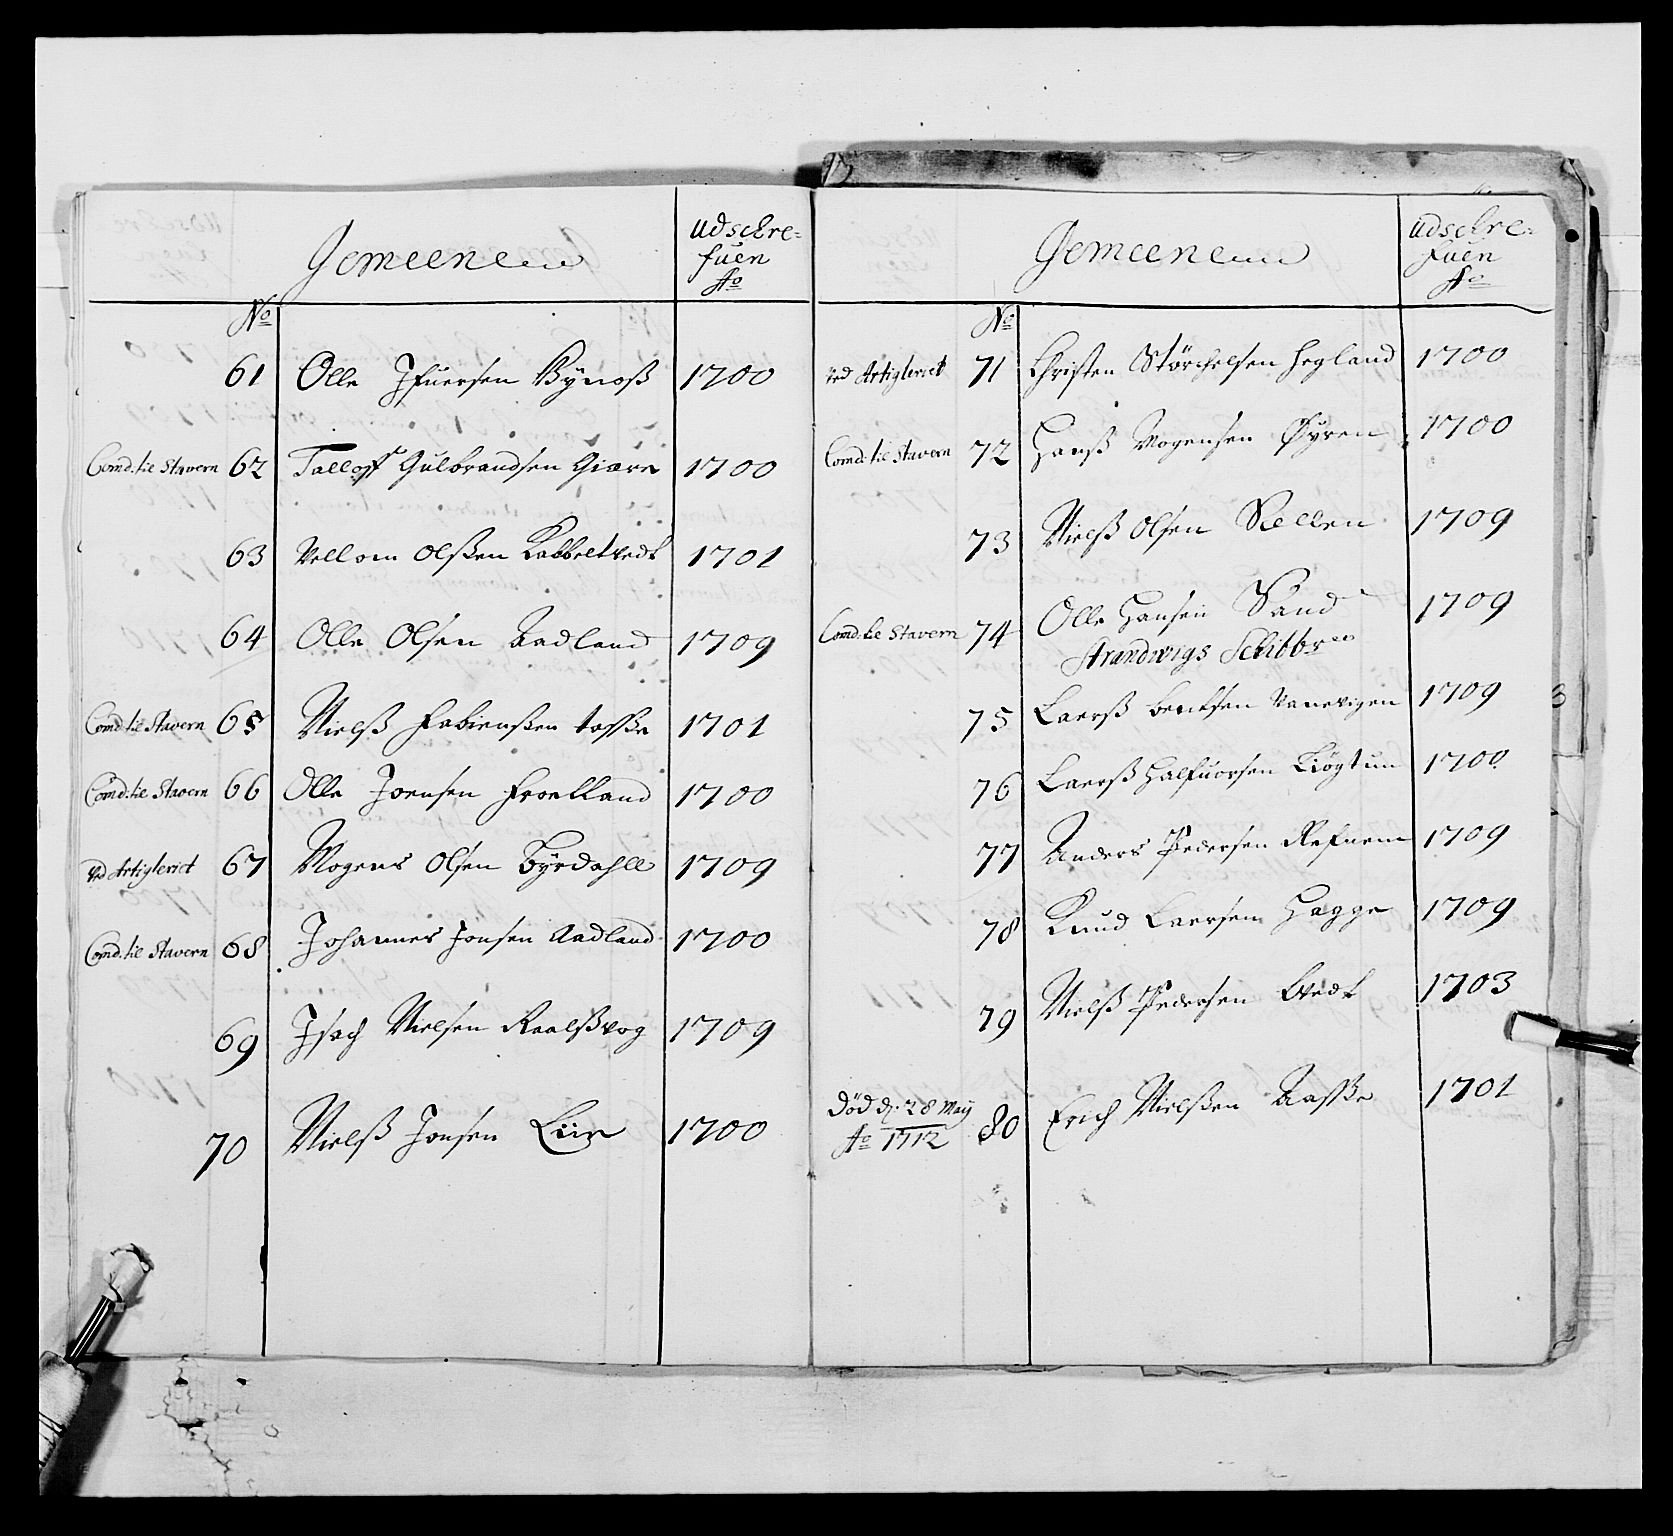 Gemeene
udschre-
fuen
Ao
No
61 Olle Jfuersen Bÿnoß 1700
Comd. til Stavern 62 Talloff Gulbrandsen Giære 1700
63 Vellom Olßen Kabbeltvedt 1701
64 Olle Olsen Aadland 1709
Comd. til Stavern 65 Nielß Fabienßen taßke 1701
Comd. til Stavern 66 Olle Joensen Froelland 1700
Ved Artigleriet 67 Mogens Olsen Bÿrdahll 1709
Comd. til Stavern 68 Johannes Jonsen Aadland 1700
69 Jsach Nielsen Raelßvog 1709
70 Nielß Jonsen Liir 1700
Gemeene
udschre-
fuen
Ao
No
Ved Artigleriet 71 Christen Störchelsen Hegland 1700
Comd. til Stavern 72 Hanß Mogensen Øyren 1700
73 Nielß Olsen Vellen 1709
Comd. til Stavern 74 Olle Hansen Sand 1709
Strandwigs Schibbr
75 Laerß bentsen Vanevigen 1709
76 Laerß Halfuorsen Liøgtun 1700
77 Anders Pedersen Refnem 1709
78 Knud Laersen Hagge 1709
79 Nielß Pedersen Evedt 1703
död d. 28 Maÿ
Ao 1712 80 Erich Nielßen Aaßke 1701